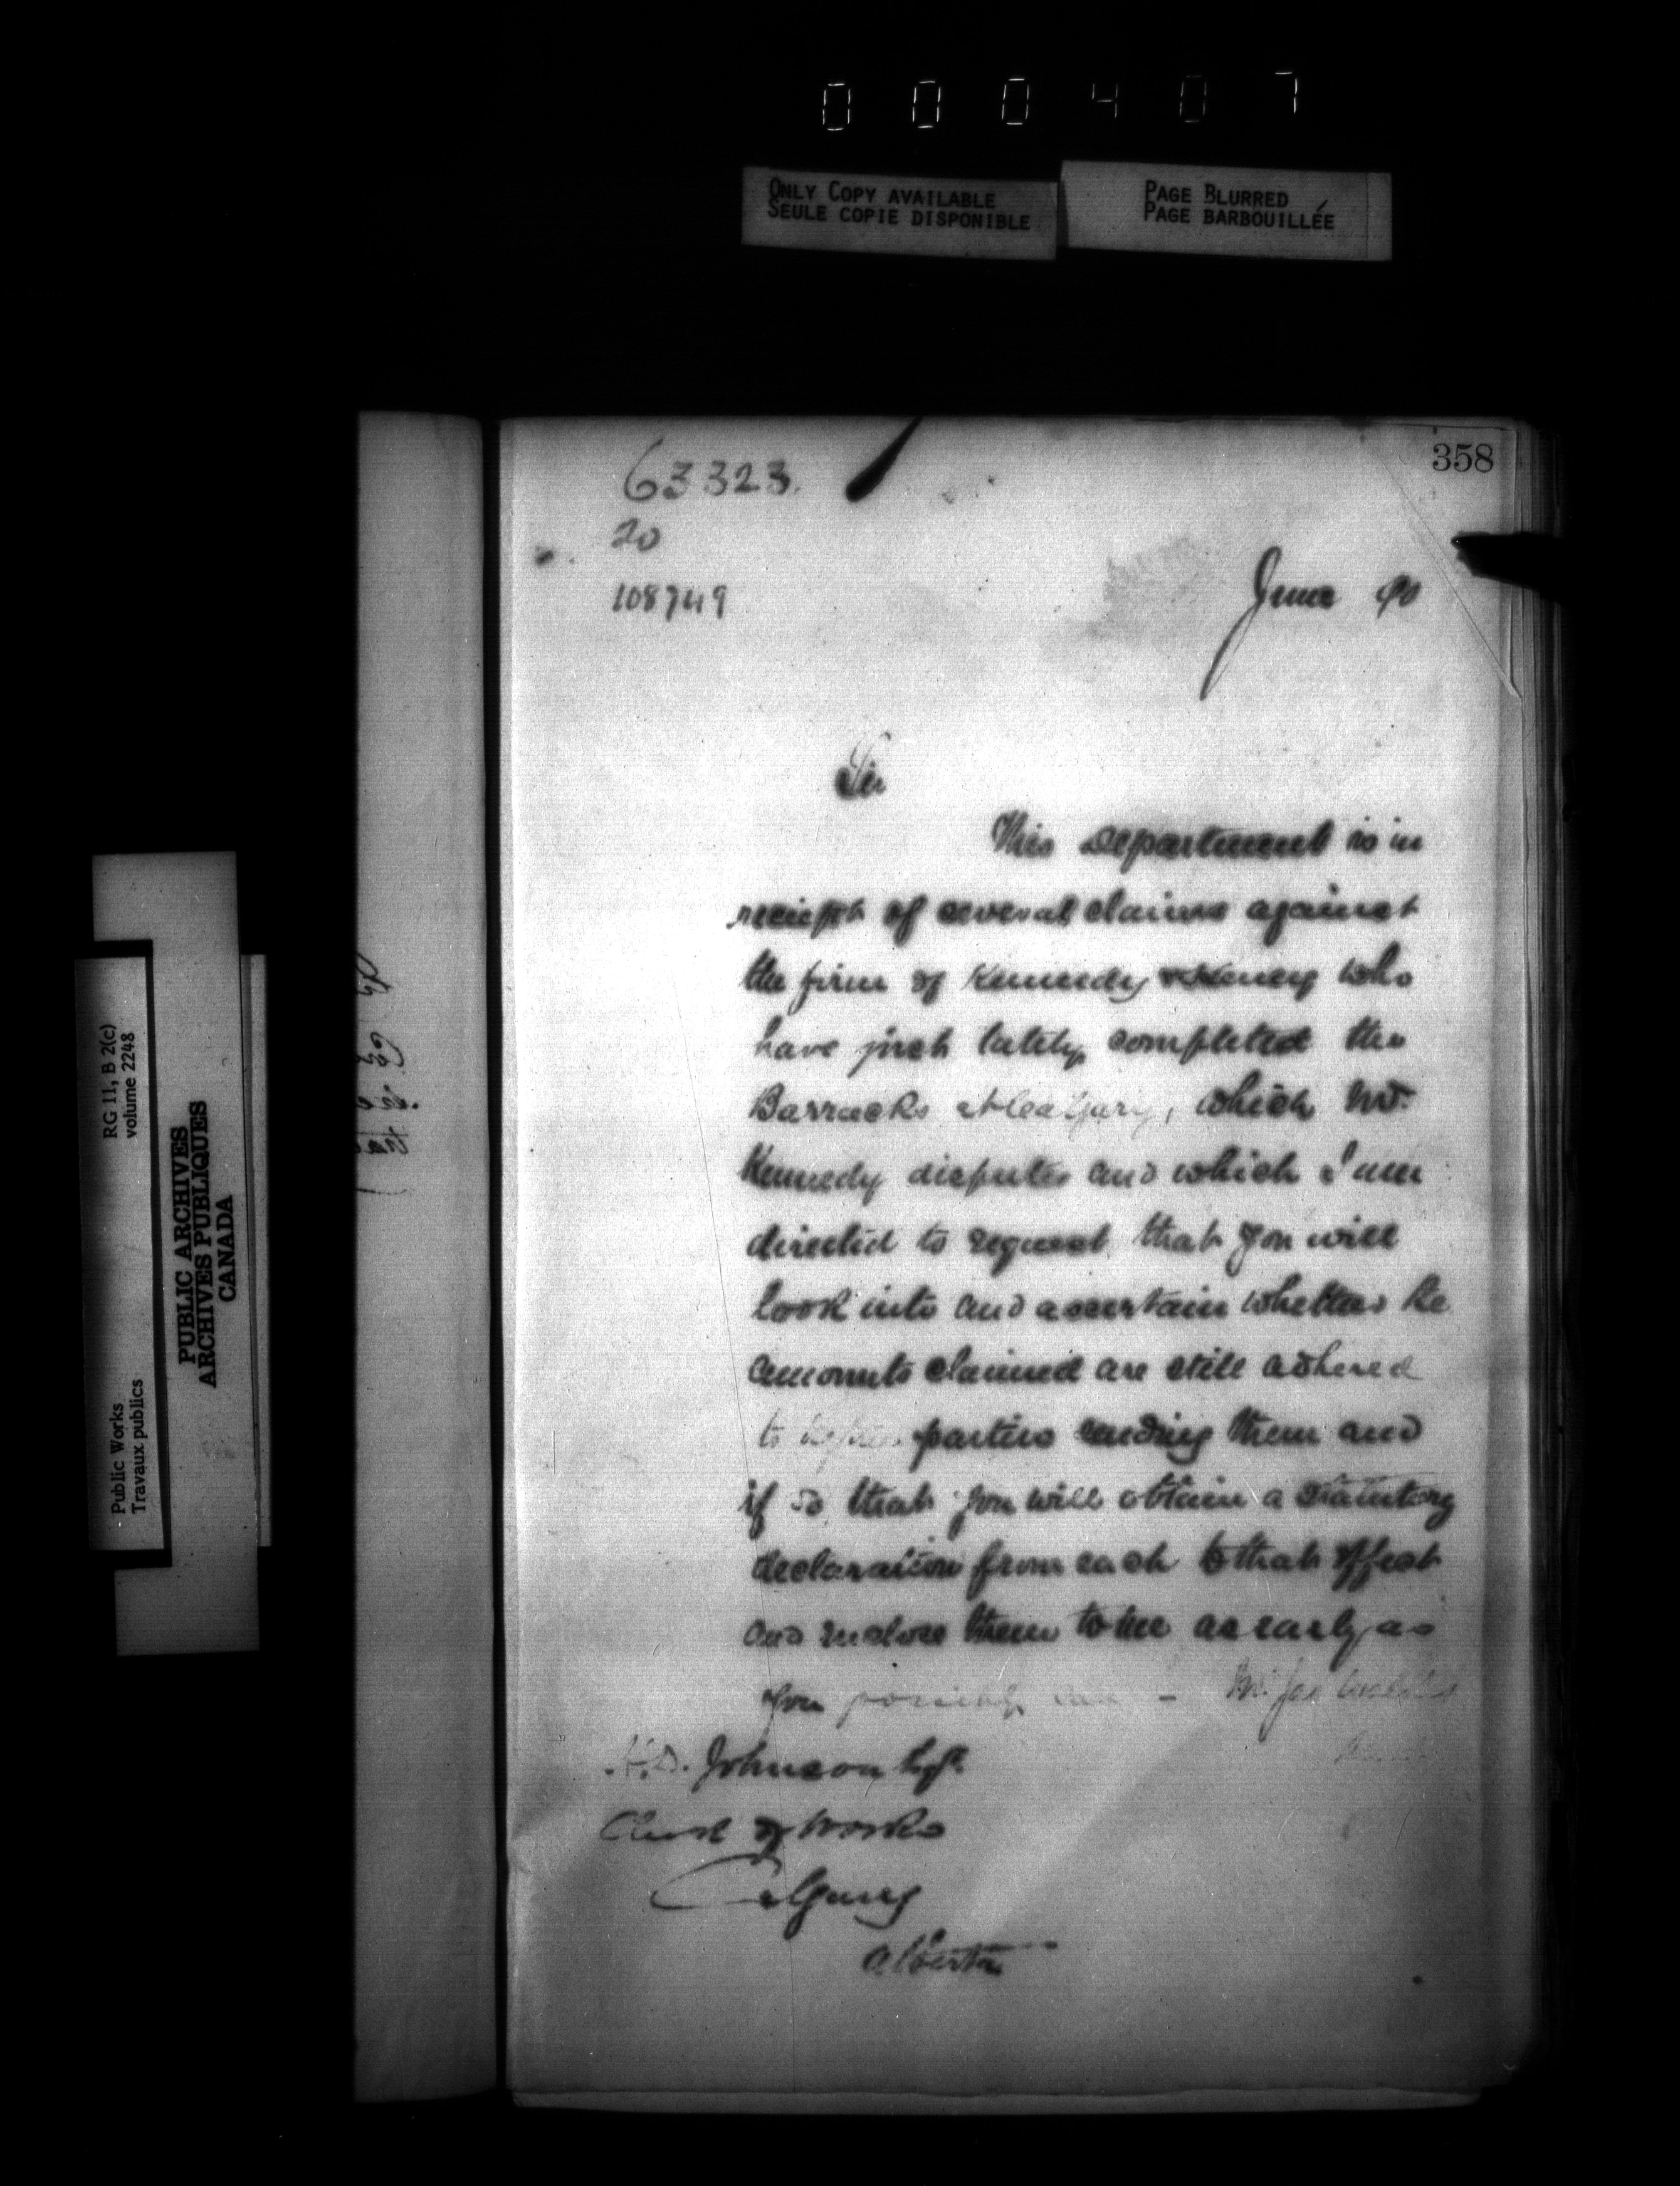 000407
ONLY COPY AVAILABLE
SEULE COPIE DISPONIBLE
PAGE BLURRED
PAGE BARBOUILLÉE
358
63323.
20
108749
June 90
Sir
This Department is in
reciept of several claims against
the firm of Kennedy who
have just lately completed the
Barracks at Calgary, which Mr.
Kennedy disputes and which I am
directed to request that you will
look into and ascertain whether the
amounts claimed are still adhered
to parties sending them and
if so that you will obtain a statutory
declaration from each to that effect
and enclose them to me as early as
you possibly can - Mr. Jas
H.D. Johnson Esqr.
Clerk of Works
Calgary
Alberta
RG 11, B 2(c)
volume 2248
Public Works
Travaux publics
PUBLIC ARCHIVES
ARCHIVES PUBLIQUES
CANADA